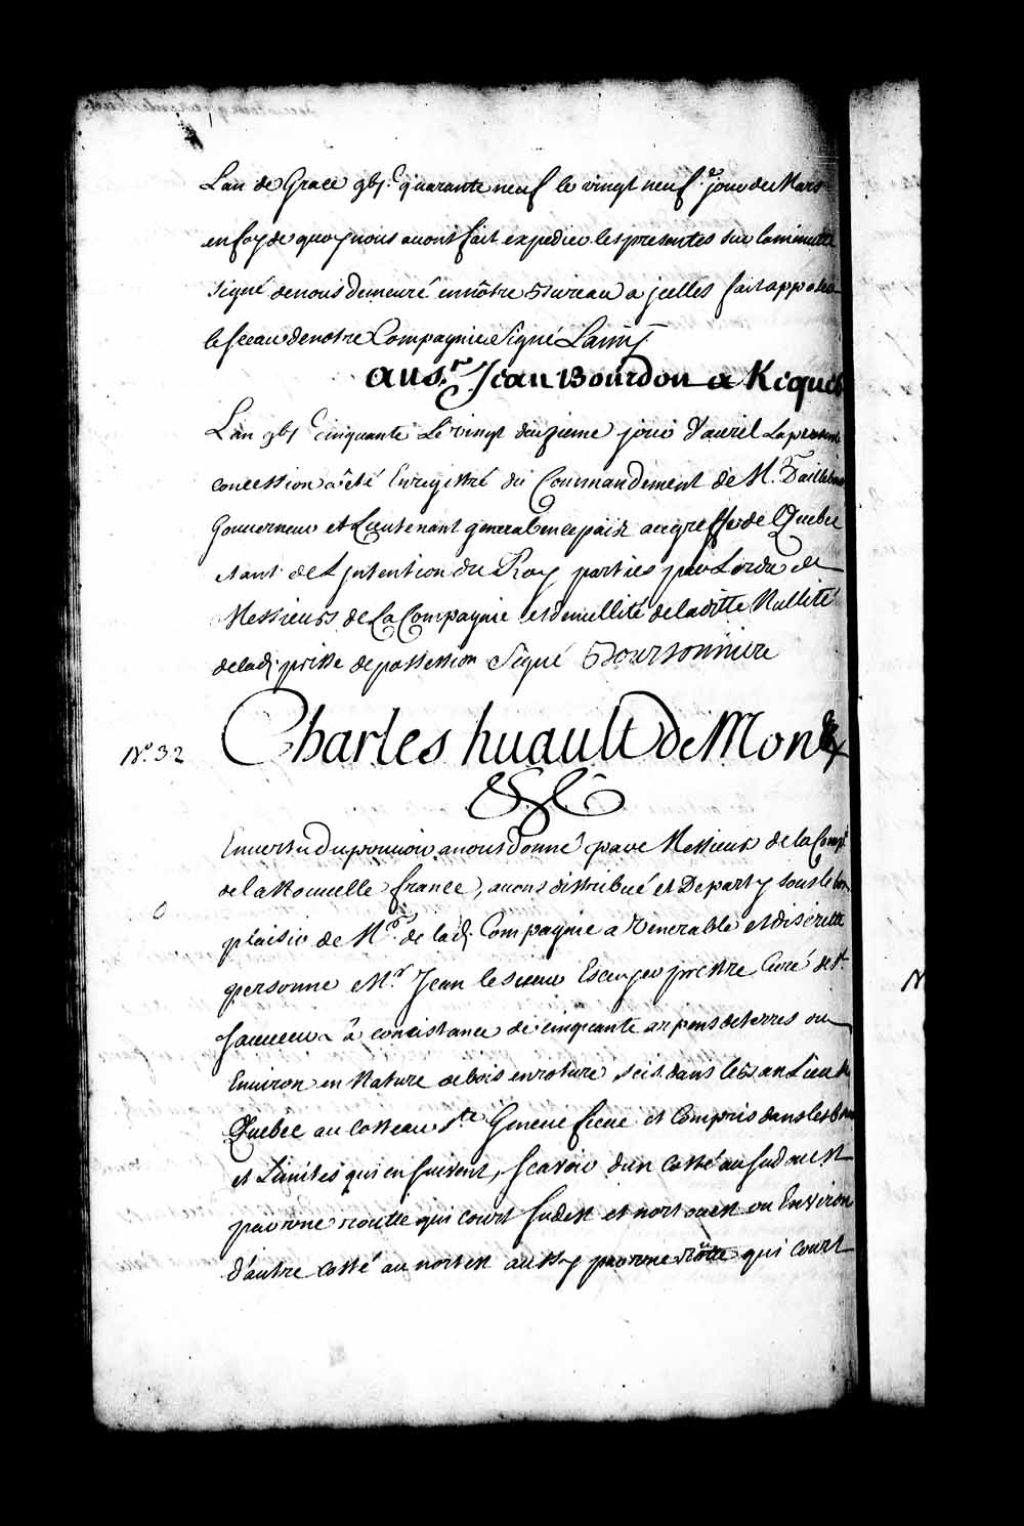 L'an de Grace gbj.C quarante neuf le vingt neuf.e jour de Mars
en foy de quoy nous avons fait expedier les presentes sur la minutte
signé de nous demeuré en nôtre Bureau a jcelles fait apposer
le sceau de notre Compagnie Signé Lamy
au S.r Jean Bourdon a Kequeb
L'an gbj C cinquante Le vingt deuzieme jour d'avril La presente
concession a été Enregistré du Commandement de M.r Daillebout
Gouverneur et Lieutenant general en ce païs au greffe de Quebec
etant de L'jntention du Roy parties par Lordre de
Messieurs de La Compagnie et de nullité de laditte Nullité
de lad. prise de possession Signé Boursonniere
N.o 32 Charles huault de Mont
&c
En vertu du pouvoir a nous donné par Messieurs de la Comp.e
de la Nouvelle france, avons distribué et Departy sous le bon
plaisir de M.rs de lad. Compagnie a Venerable et discrette
personne M.r Jean le sueur Escuyer prestre Curé de S.t
Sauveur à concistance de cinquante arpens de terres ou
Environ en Nature de bois en roture, scis dans le Ban Lieu de
Quebec au Costeau S.te Genevefieve et Compris dans les bornes
et Limites qui en suivent, scavoir d'un Costé au sud ouest
par une routte qui court sudest et nort ouest ou Environ
d'autre Costé au nortest aussy par une rôutte qui court